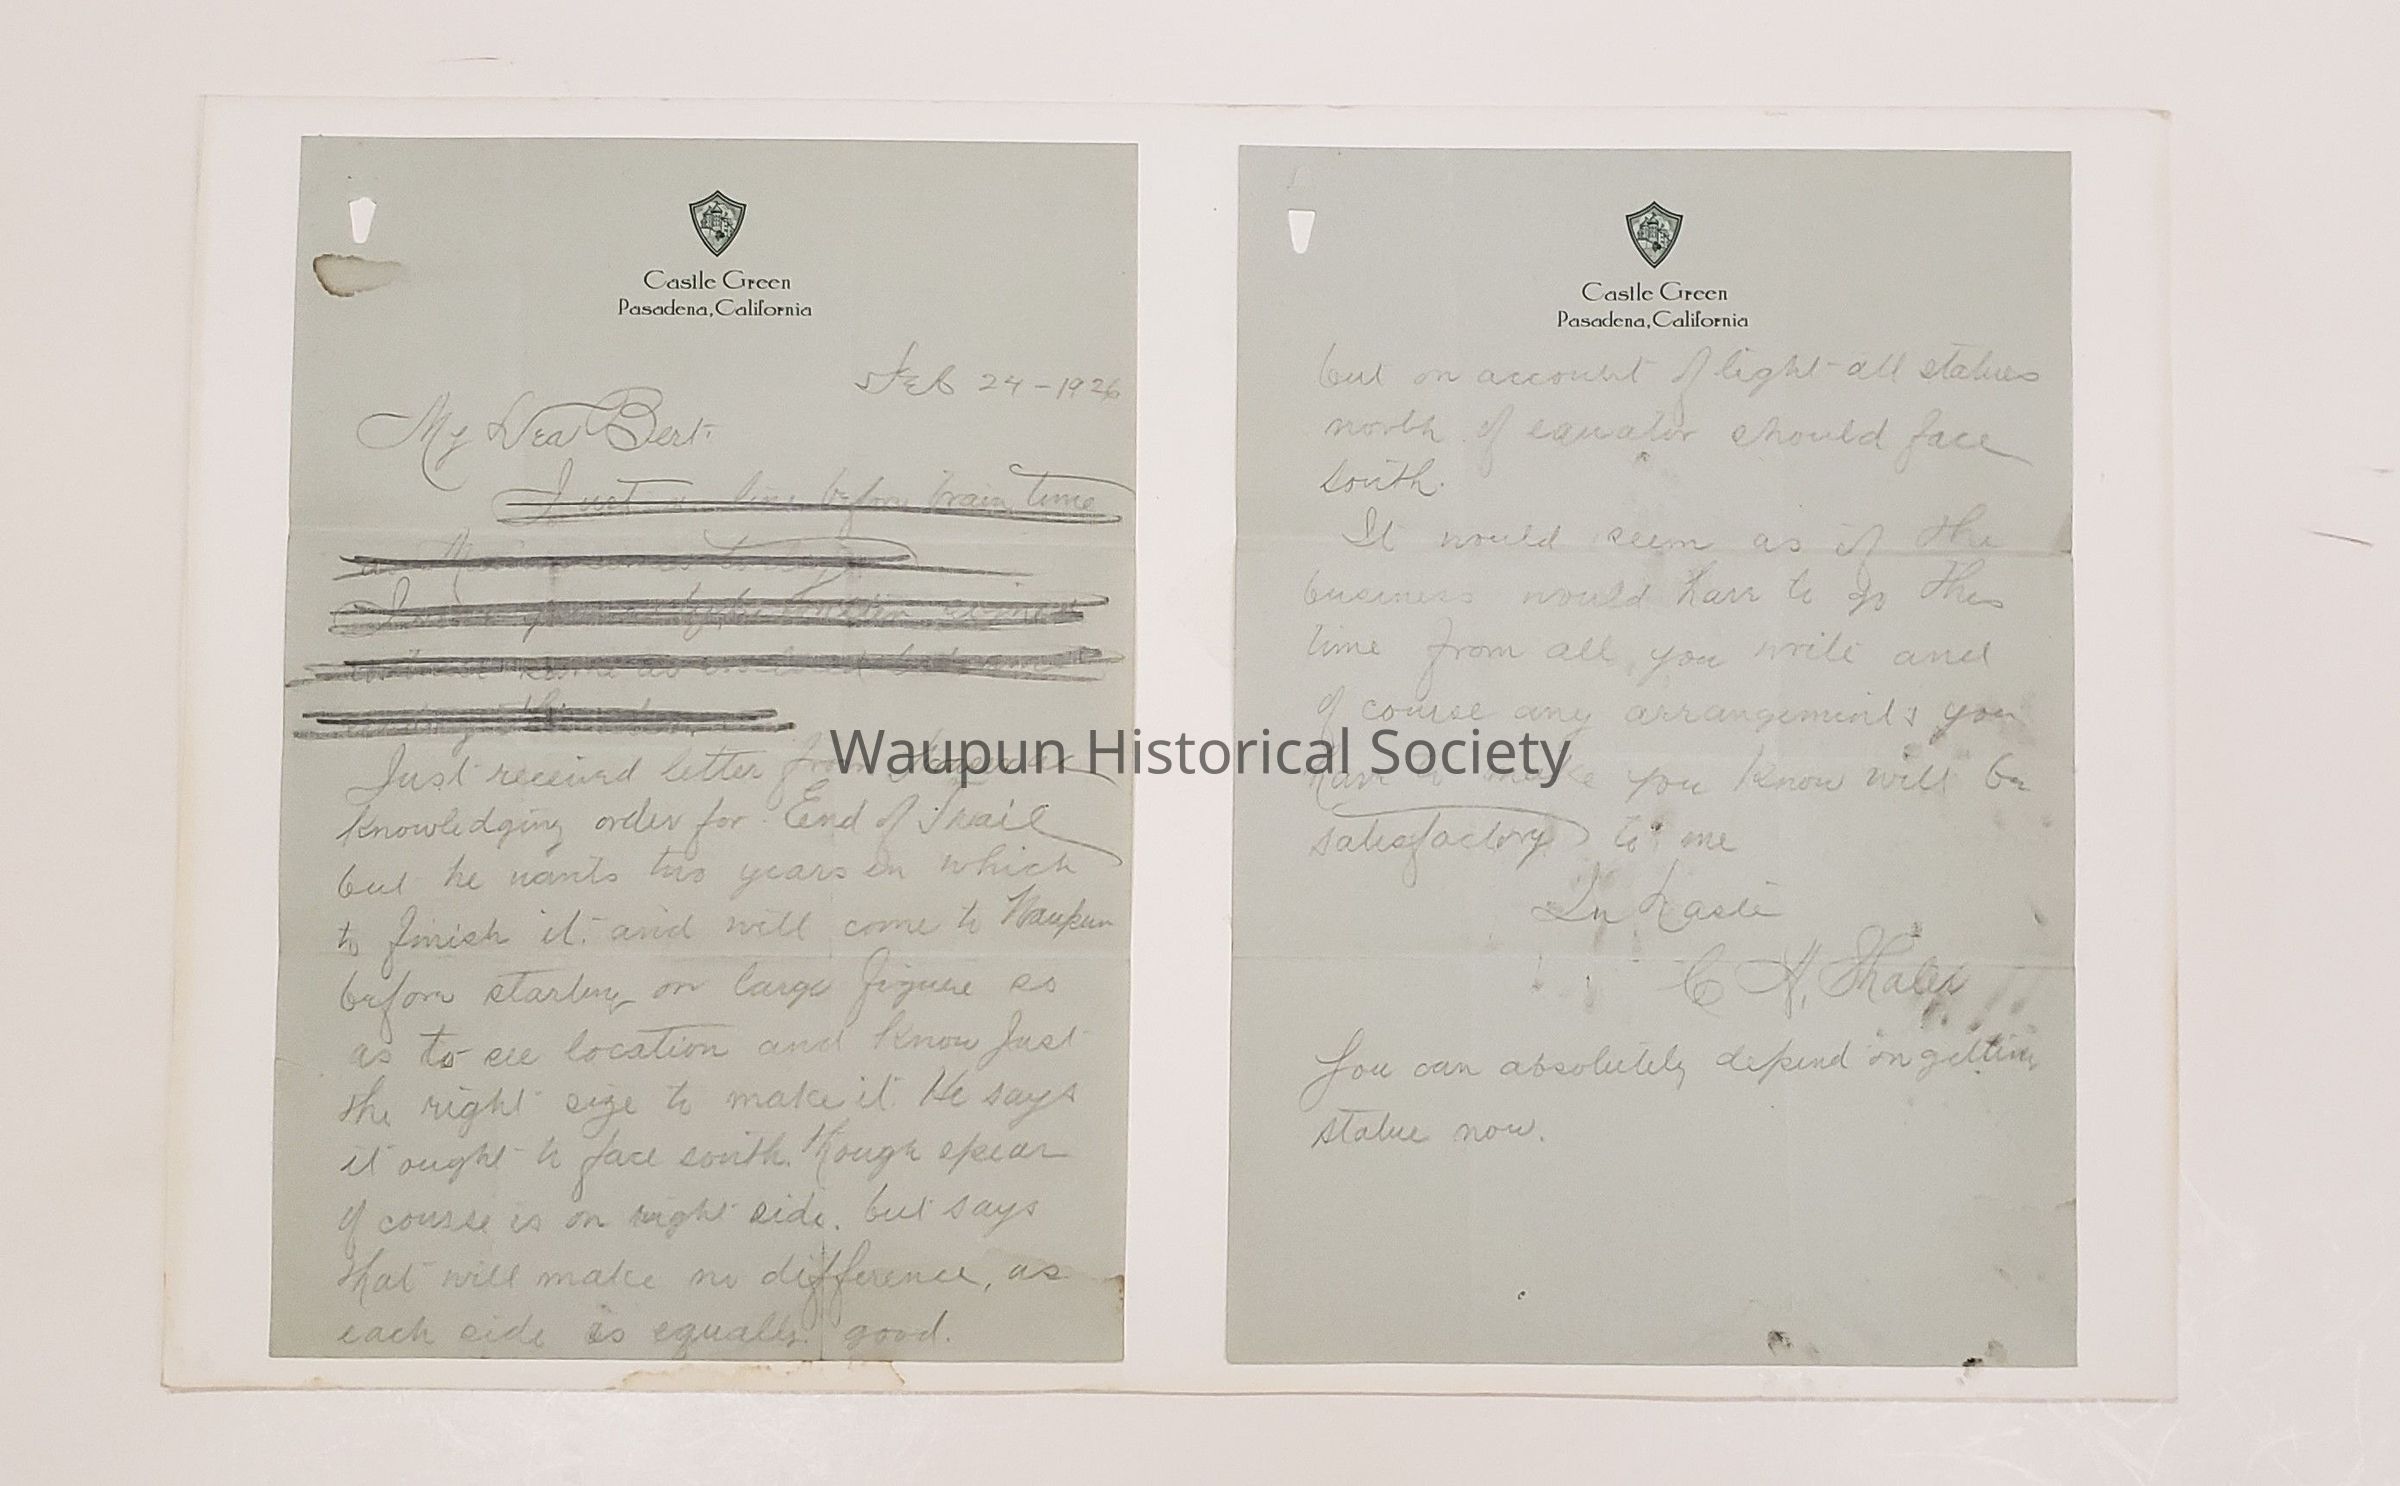 Castle Green
Pasadena, California
Feb 24 - 1926
My Dear Bert.
Just a line before train time
Just received letter from
knowledging order for End of Trail
but he wants two years in which
to finish it. and will come to Waupun
before starting on large figure as
as to see location and know just
the right size to make it. He says
it ought to face south. Though spear
of course is on right side. but says
that will make no difference, as
each side is equally good.
Castle Green
Pasadena, California
but on account of light all statues
north of equator should face
south.
It would seem as if the
business would have to go this
time from all you write and
of course any arrangements you
have to make you know will be
satisfactory to me
In haste
C A. Shaler
You can absolutely depend on getting
statue now.
Waupun Historical Society